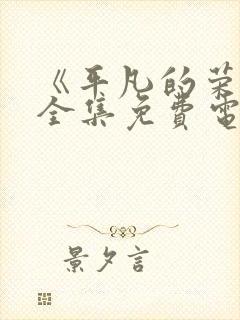 《平凡的荣
全集免費電
景夕言